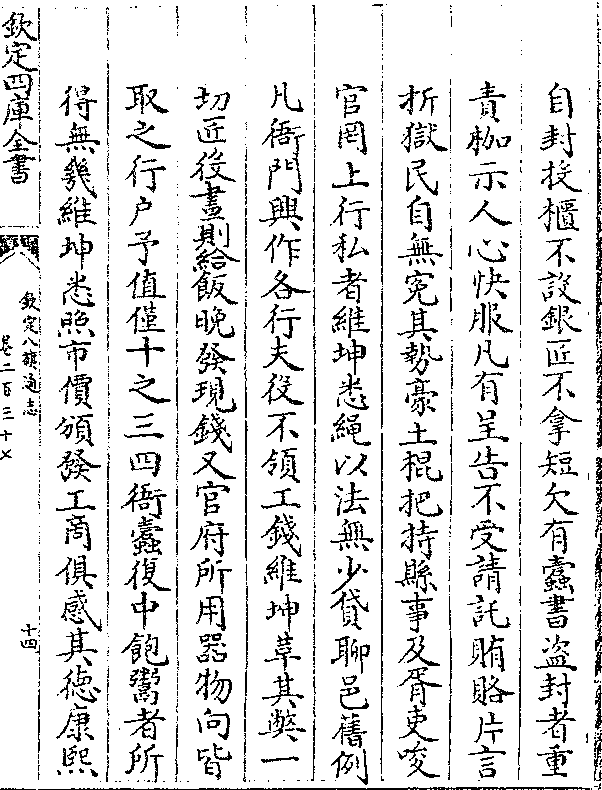 自封投櫃不設銀匠不拿短欠有蠹書盗封者重
責枷示人心快服凡有呈告不受請託賄賂片言
折獄民自無寃其勢豪土棍把持縣事及胥吏唆
官罔上行私者維坤悉繩以法無少貸聊邑舊例
凡衙門興作各行夫役不領工錢維坤革其弊一
切匠役晝則給飯晚發現錢又官府所用器物向皆
取之行户予值僅十之三四衙蠹復中飽鬻者所
得無幾維坤悉照市價頒發工商俱感其徳康熙
欽定四庫全書
欽定八旗通志
卷二百三十七
十四